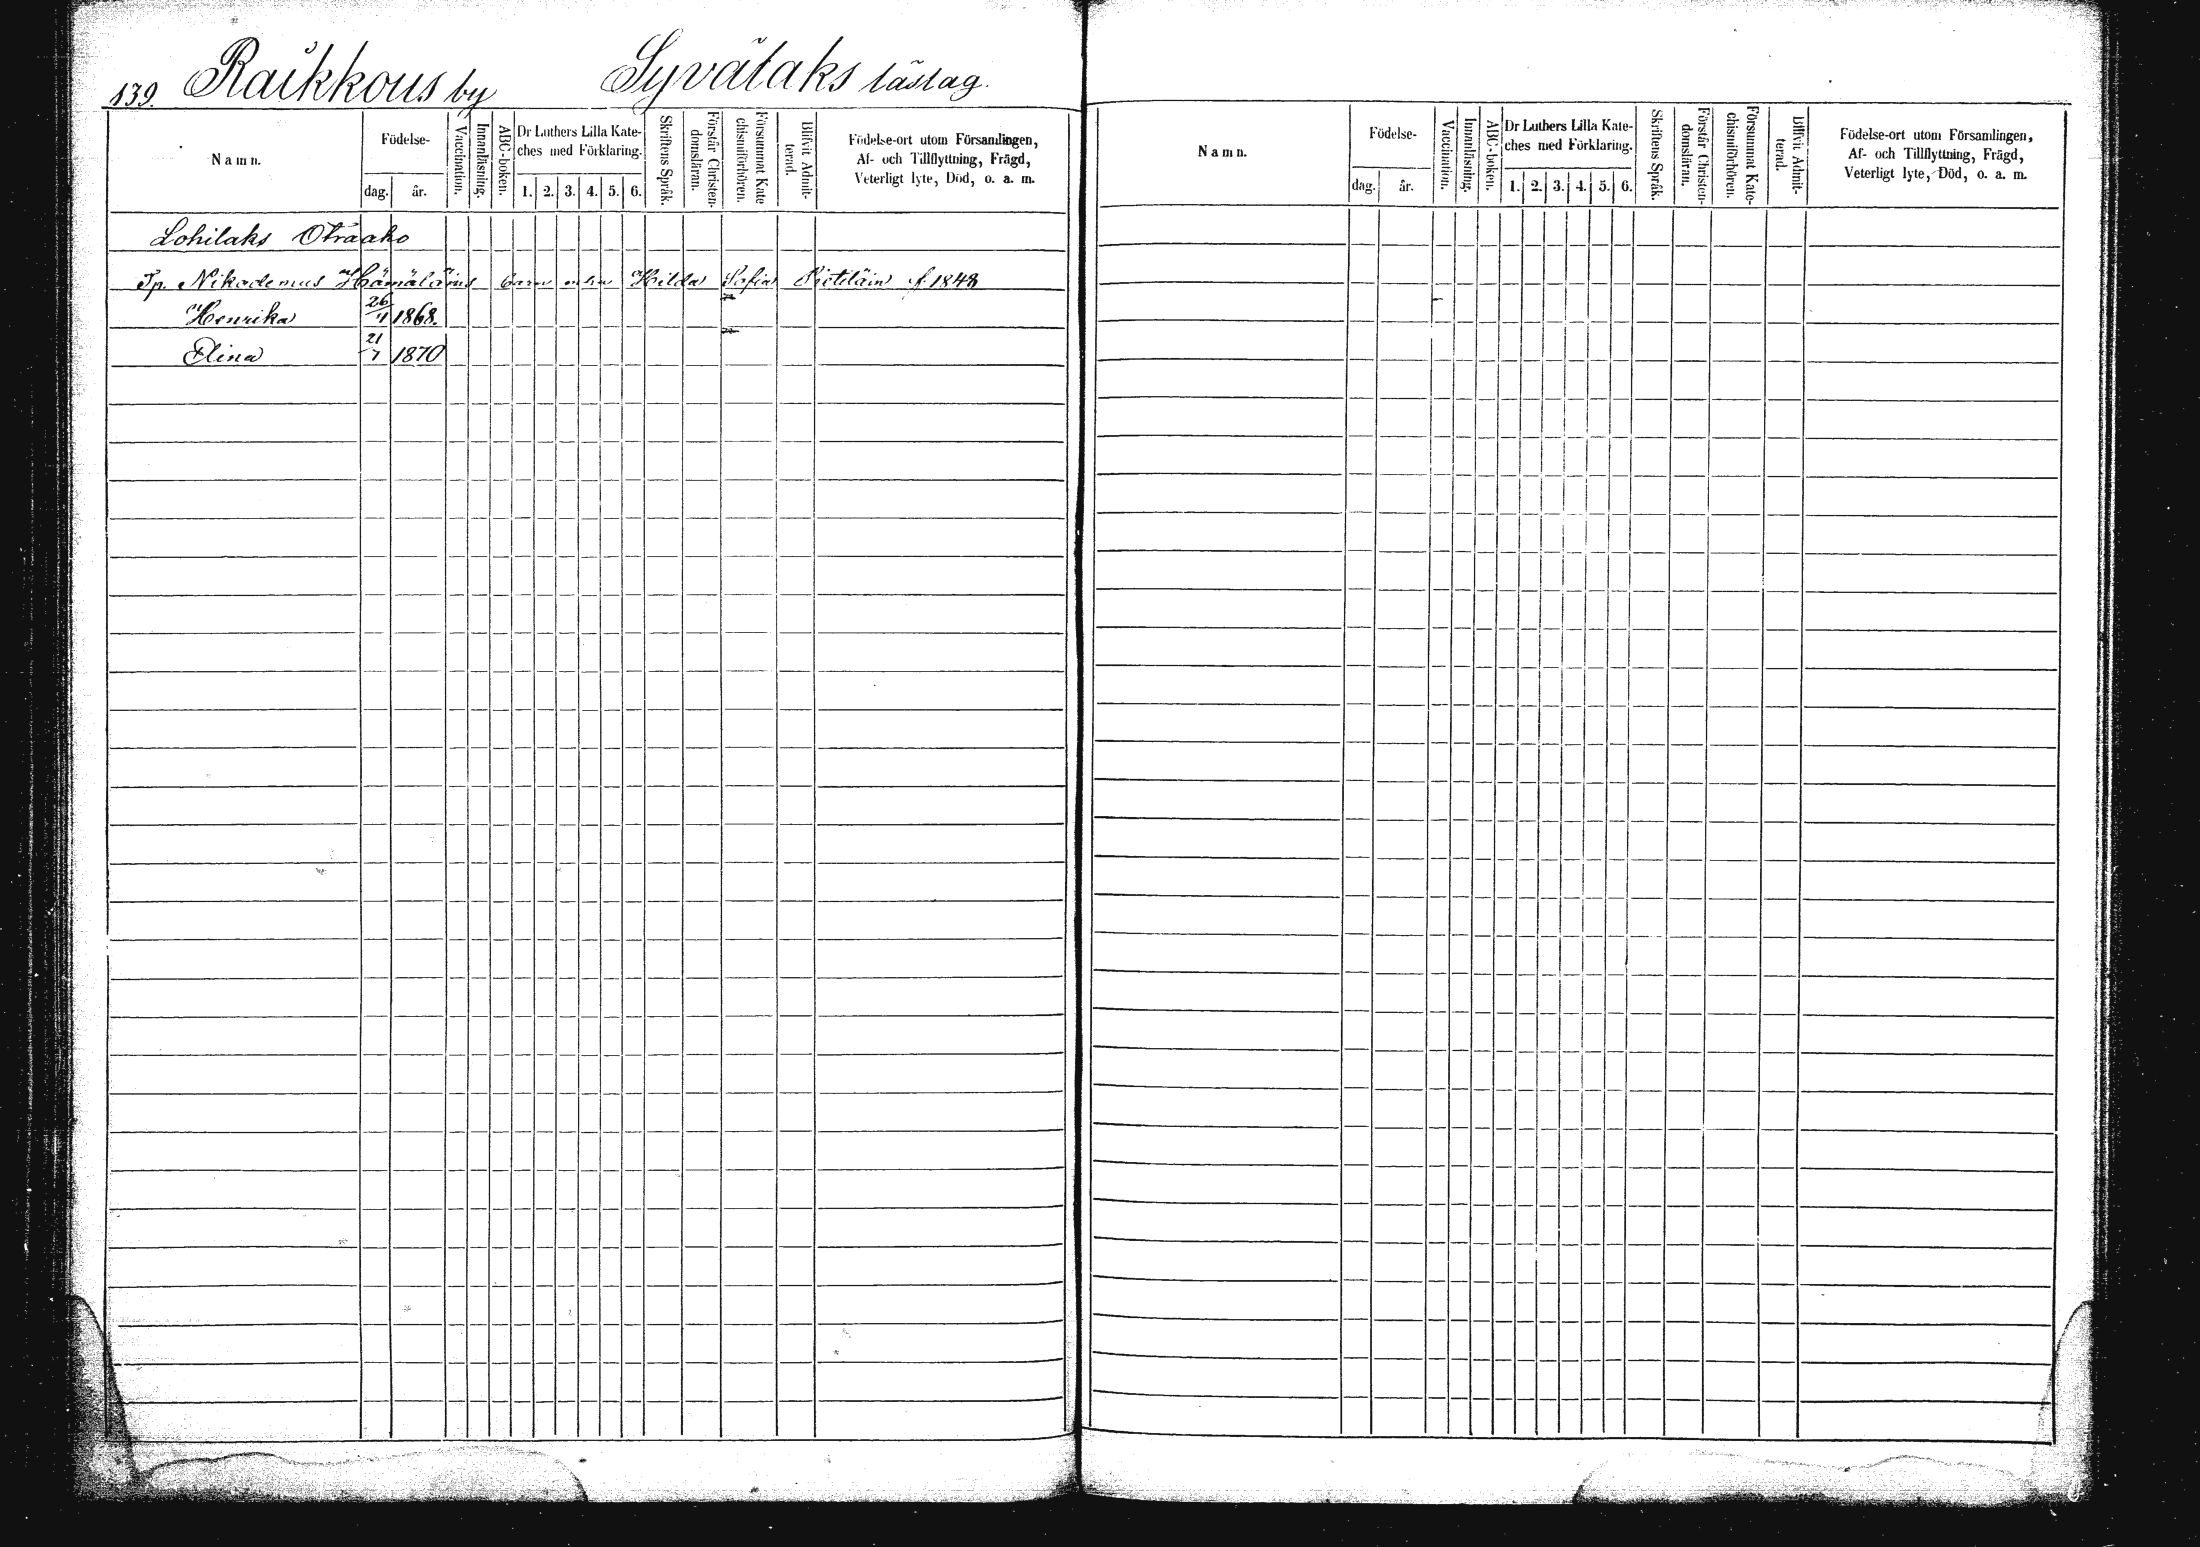 139. Raikkous by Syvälaks läslag.
Namn. Födelse- dag. år. Vaccination. Innanläsning. ABC-boken. Dr Luthers Lilla Kate- ches med Förklaring. 1. 2. 3. 4. 5. 6. Skriftens Språk. Förstår Christen- domsläran. Försummat Kate chismiförhören. Blifvit Admit- terad. Födelse-ort utom Församlingen, Af- och Tillflyttning, Frägd, Veterligt lyte, Död, o. a. m.
Lohilaks Otraako
Sp. Nikodemus Hämäläins barn m hu Hilda Sofia f. 1848
Henrika 26/11 1868.
Elina 21/7 1870
Namn. Födelse- dag. år. Vaccination. Innanläsning. ABC-boken. Dr Luthers Lilla Kate- ches med Förklaring. 1. 2. 3. 4. 5. 6. Skriftens Språk. Förstår Christen- domsläran. Försummat Kate- chismiförhören. Blifvit Admit- terad. Födelse-ort utom Församlingen, Af- och Tillflyttning, Frägd, Veterligt lyte, Död, o. a. m.